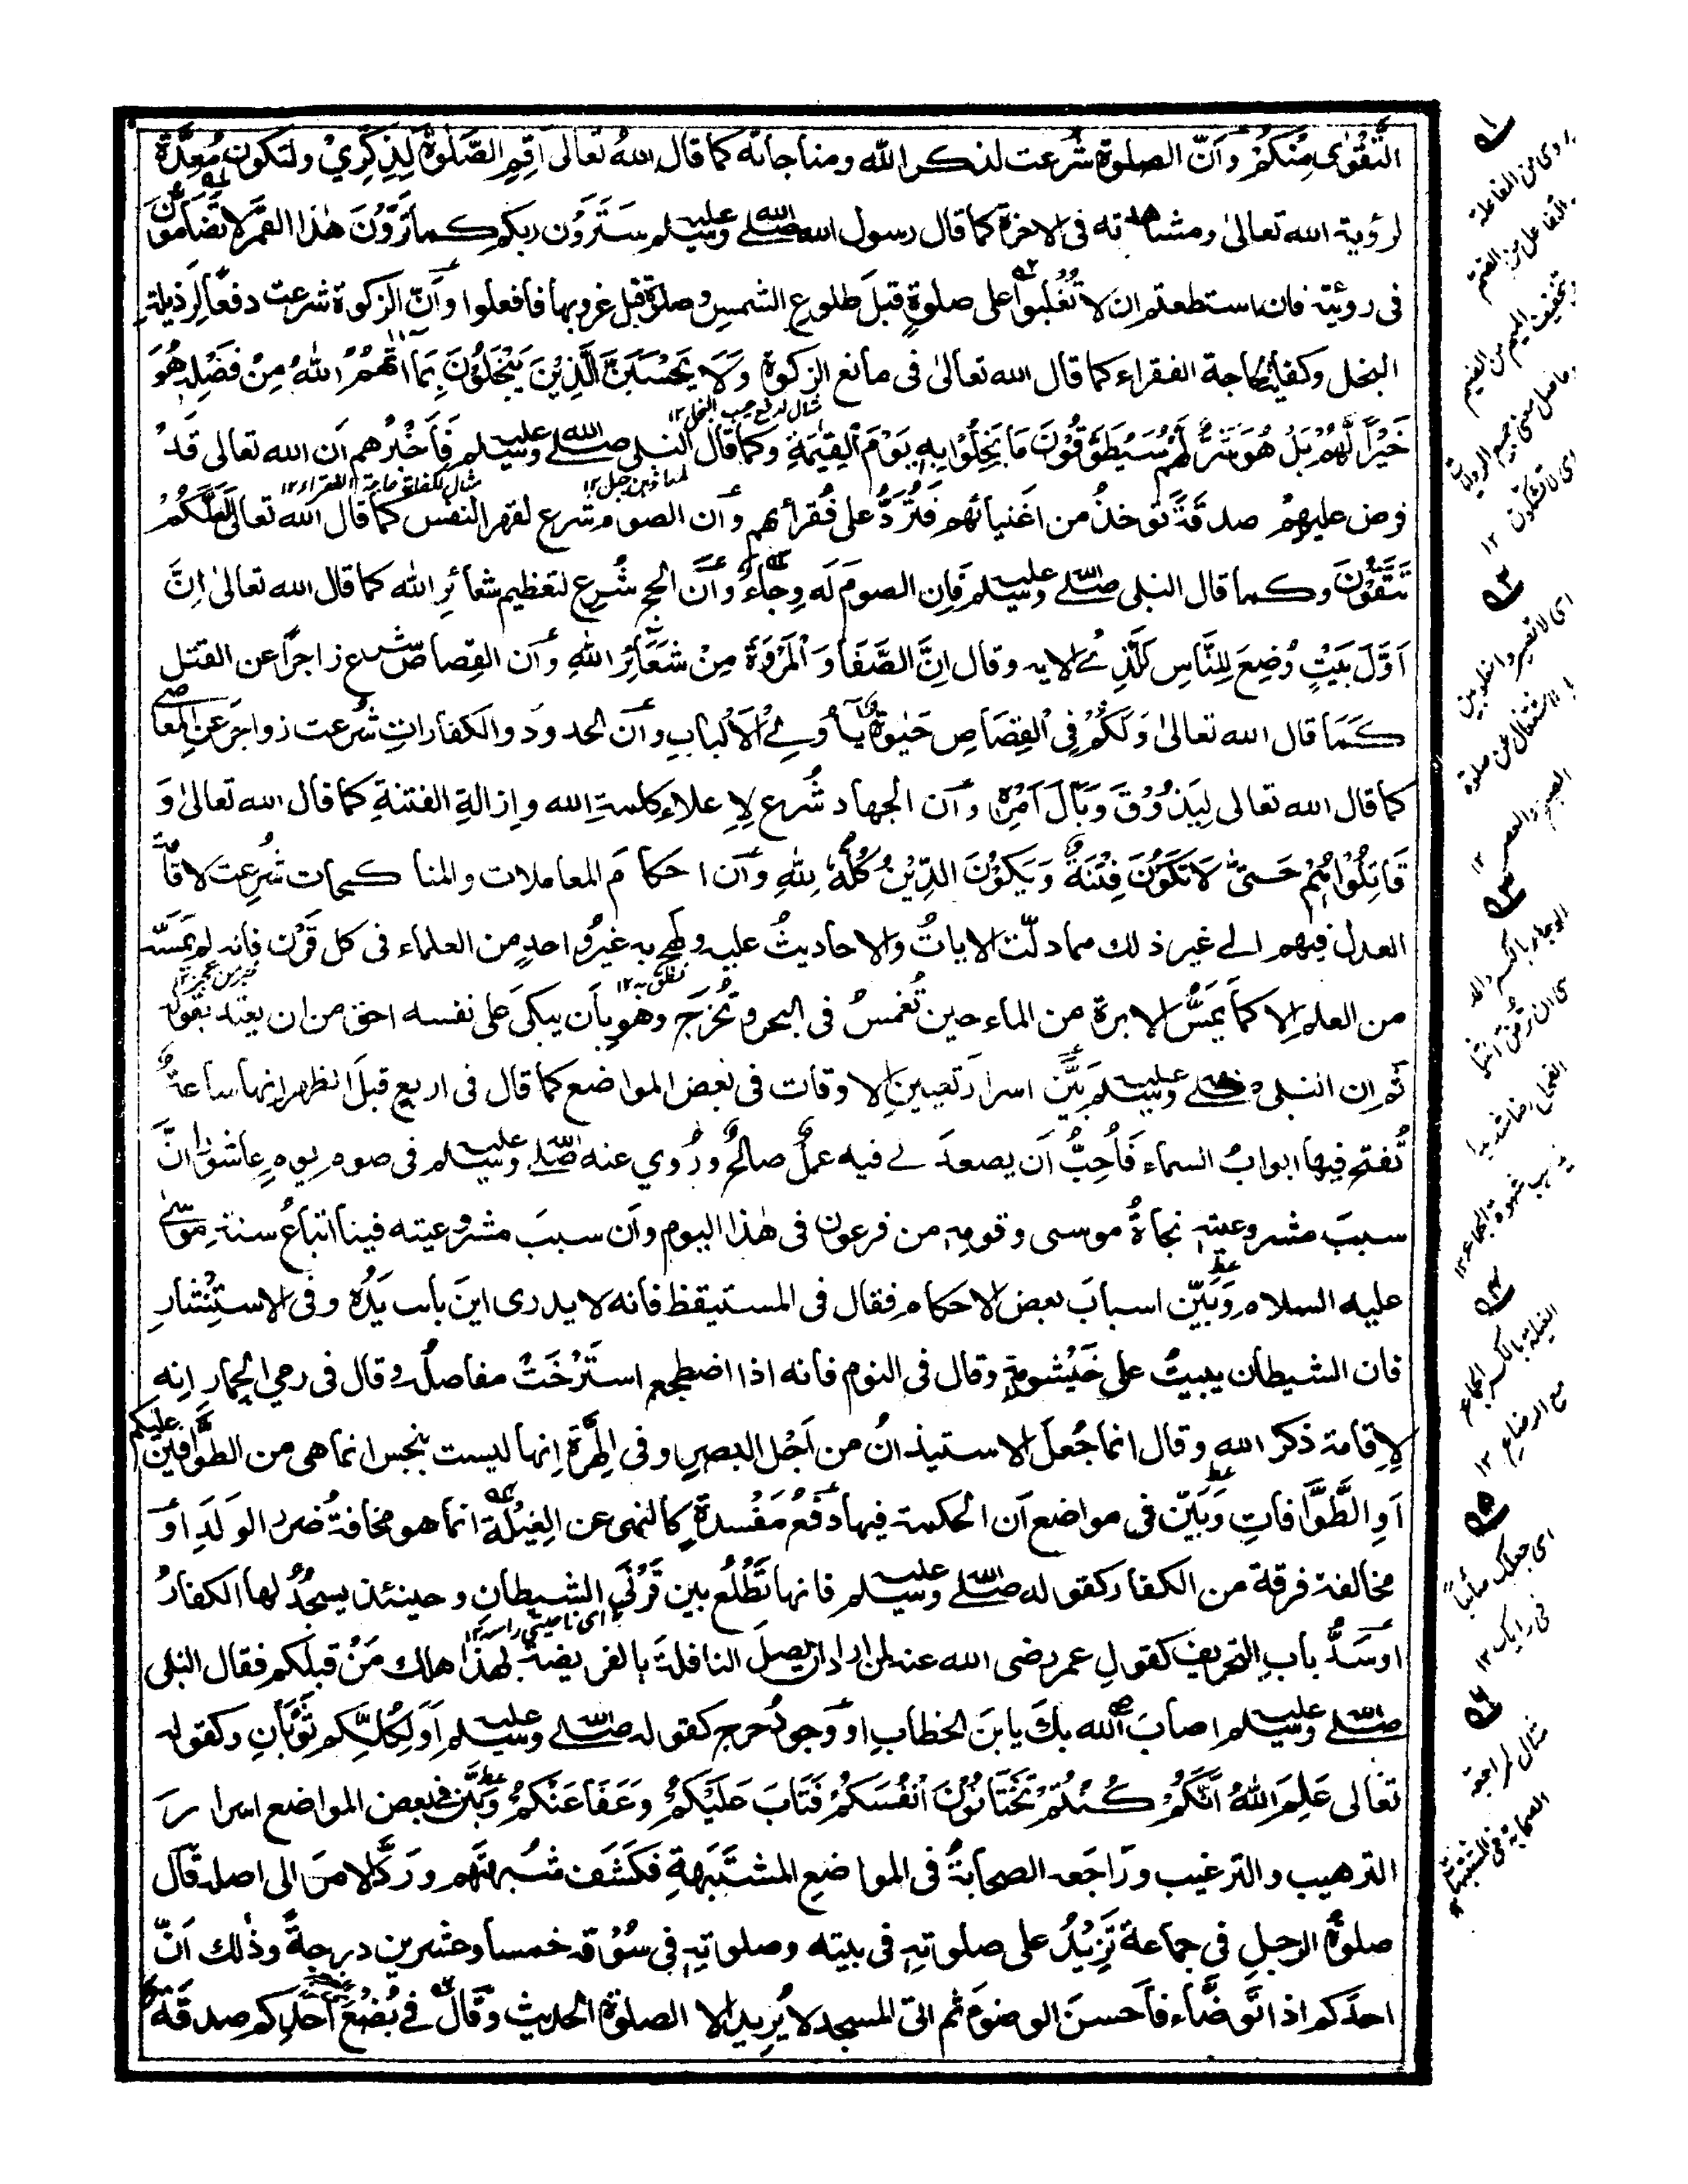 التَّقْوٰى مِنْكُمْ وَاَنّ الصلوة شُرعت لذكر الله ومناجاته كما قال اللهُ تعالى اَقِمِ الصَّلٰوةَ لِذِكْرِيْ ولتكون مُعِدَّة
لرؤية الله تعالىٰ ومشاهدته فى الاخرة كما قال رسول الله صلى الله عليه وسلم سَتَرَوْن ربكم كما تَرَوْنَ هٰذا القمَر لا تضامّون
فى روئية فان استطعتم ان لا تُغْلَبوا على صلوةٍ قبلَ طلوع الشمسِ وصلوةٍ قبل غروبها فافعلوا وأَنّ الزكوة شرعت دفعًا لِرذيلةِ
البخل وكفايةً لحاجة الفقراء كما قال الله تعالىٰ فى مانع الزكوة وَلَا يَحْسَبَنَّ الَّذِيْنَ يَبْخَلُوْنَ بِمَا اٰتٰهُمُ اللهُ مِنْ فَضْلِهٖ هُوَ
خَيْرًا لَّهُمْ بَلْ هُوَ شَرٌّ لَّهُمْ سَيُطَوَّقُوْنَ مَا بَخِلُوْا بِهٖ يَوْمَ الْقِيٰمَةِ وكما قال النبى صلى الله عليه وسلم فَاَخْبِرْهم اَن الله تعالى قَدْ
فرض عليهِمْ صدقَةً تُوخذُ من اغنيائهم فَتُرَدُّ على فُقرائهم وأن الصوم شرع لقهر النفس كما قال الله تعالى لَعَلَّكُمْ
تَتَّقُوْنَ وكما قال النبى صلى الله عليه وسلم فَاِن الصومَ لَه وِجَاءٌ وَأَنّ الحج شُرِع لتعظيم شعائرِ الله كما قال الله تعالىٰ اِنَّ
اَوَّلَ بَيْتٍ وُضِعَ لِلنَّاسِ لَلَّذِىْ الاية وقال اِنَّ الصَّفَا وَالْمَرْوَةَ مِنْ شَعَائِرِ اللهِ وأن القِصاصَ شرع زاجرًا عن القتل
كَمَا قال الله تعالىٰ وَلَكُمْ فِى الْقِصَاصِ حَيٰوةٌ يٰا ُولِى الْاَلْبَابِ وأن الحدودَ والكفاراتِ شُرعت زواجرَ عن المعاصى
كما قال الله تعالى لِيَذُوْقَ وَبَالَ اَمْرِهٖ وأن الجهاد شُرع لِاعلاء كلمةِ الله واِزالةِ الفتنةِ كما قال الله تعالىٰ وَ
قَاتِلُوْهُمْ حَتىّٰ لَا تَكُوْنَ فِتْنَةٌ وَيَكُوْنَ الدِّيْنُ كُلُّهٗ لِلّٰهِ وأن احكامَ المعاملات والمناكحات شُرعت لاقامة
العدل فيهم الى غير ذلك مما دلّت الاياتُ والاحاديثُ عليه ولَهِج به غيرُ واحدٍ من العلماء فى كل قَرْن فانه لم يَمَسَّه
من العلم الا كما يَمَسُّ الابرة من الماء حين تُغمسُ فى البحر وتُخرَج وهو بأن يبكىَ على نفسه احق من ان يعتد بقوله
ثم ان النبى صلى الله عليه وسلم بَيَّن اسرارَ تعيينِ الاوقات فى بعض المواضع كما قال فى اربع قبلَ الظهر انها ساعةٌ
تُفتح فيها ابوابُ السماء فَاُحِبُّ اَن يصعدَ لى فيه عملٌ صالحٌ ورُوي عنه صلى الله عليه وسلم فى صوم يوم عاشوراء انَّ
سببَ مشروعيتهٖ نجاةُ موسى وقومهٖ من فرعون فى هٰذا اليوم وأن سببَ مشروعيته فينا اتباعُ سنةِ موسىٰ
عليه السلام وَبَيَّن اسبابَ بعض الاحكام فقال فى المستيقظ فانه لا يدرى اينَ باتت يَدُه وفى الاستِنْثارِ
فان الشيطان يبيتُ على خَيْشومهٖ وقال فى النوم فانه اذا اضطجع استَرْخَتْ مفاصلُه وقال فى رمي الجمار انه
لِاِقامة ذكر الله وقال انما جُعلَ الاستيذانُ من اَجْل البصرِ وفى الهِرَّة اِنها ليست بنجس انما هى من الطوَّافِيْن عليكم
اَوِ الطَّوَّافاتِ وَبَيّن فى مواضع اَن الحكمة فيها دفعُ مَفْسدةٍ كالنهى عن الغِيْلة انما هو مخافةُ ضرر الولَدِ او
مخالفة فرقة من الكفار كقوله صلى الله عليه وسلم فانها تَطْلُعُ بين قَرْنَىِ الشيطان وحينئذ يسجُدُ لها الكفارُ
اوسَدُّ بابِ التحريف كقولِ عمر رضى الله عنه لمن اراد ان يصلَ النافلةَ بالفريضة لهذا هلك مَنْ قبلكم فقال النبى
صلى الله عليه وسلم اصابَ الله بكَ يا بنَ الخطابِ او وجودُ حرج كقوله صلى الله عليه وسلم اَوَلِكُلِّكم ثَوْبَانِ وكقوله
تعالى عَلِمَ اللهُ اَنَّكُمْ كُنْتُمْ تَخْتَانُوْنَ اَنْفُسَكُمْ فَتَابَ عَلَيْكُمْ وَعَفَا عَنْكُمْ وبَيَّن فى بعض المواضع اسرارَ
الترهيب والترغيب ورَاجَعه الصحابةُ فى المواضعِ المشتَبَهةِ فكَشَفَ شُبهتَهم وردَّ الامرَ الى اصله قال
صلوةُ الرجلِ في جماعة تَزِيْدُ على صلوتهٖ فى بيته وصلوتهٖ فى سُوْقه خمسا وعشرين درجةً وذٰلك اَنّ
احدَكم اذا توضَّاء فأحسنَ الوضوءَ ثم اتى المسجد لا يُريد الا الصلوةَ الحديث وقالَ فى بُضْعِ اَحدِكم صدقَةٌ
مثال لدفع عيب البخل ١٢
مثال لكفاية حاجة الفقراء ١٢
نطق به ١٢
اى ناحيتى راسه ١٢
اى لا تشكون ١٢
الغيلة بالكسر الجماع
مع الرضاع ١٢
مثال لمراجعة